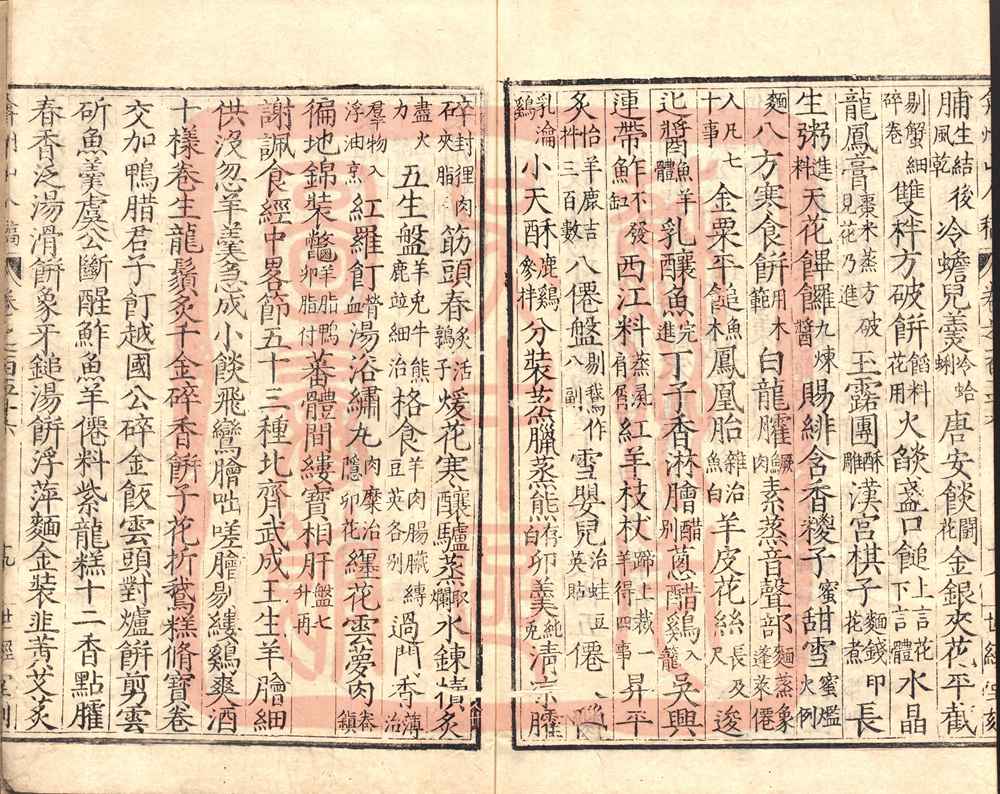 脯生結風乾後冷蟾兒羹冷蛤蜊唐安餤鬪花金銀夾花平截
剔蟹細碎卷雙拌方破餅餡料花用火燄盞口鎚上言花下言體水晶
龍鳳膏棗米蒸方破見花乃進玉露團雕酥漢宮棋子麵錢印花煮長
生粥進料天花饆饠九煉醬賜緋含香糉子蜜甜雪蜜爁火例
麵八方寒食餅用木範白龍臛鱖肉素蒸音聲部麵蒸象蓬萊僊
人凡七十事金粟平䭔魚木鳳凰胎雜治魚白羊皮花絲長及尺逡
巡醬魚羊體乳釀魚完進丁子香淋膾醋別蔥醋鷄入籠吳興
連帶魚鮓不發缸西江料蒸彘肩屑紅羊枝杖蹄上裁一羊得四事昇平
炙怡羊鹿吉拌三百數八僊盤剔鵝作八副雪嬰兒治蛙豆英貼僊
乳瀹鷄小天酥鹿鷄參拌分裝蒸臘蒸熊存白卯羹純兎清凉臛
碎封狸肉夾脂筯頭春炙活鶉子煖花寒釀驢蒸取爛水鍊犢炙
盡火力五生盤羊兎牛熊鹿竝細治格食羊肉腸臟纏豆英各別過門香薄治
羣物入浮油烹紅羅飣膋血湯浴繡丸肉糜治隱卯花纏花雲夢肉卷鎮
徧地錦裝鼈羊脂鴨卵脂付蕃體間縷寶相肝盤七升再
謝諷食經中畧節五十三種北齊武成王生羊膾細
供沒忽羊羹急成小餤飛鸞膾咄嗟膾剔縷鷄爽酒
十樣卷生龍鬚炙千金碎香餅子花折鵞糕脩寶卷
交加鴨腊君子飣越國公碎金飯雲頭對爐餅剪雲
斫魚羹虞公斷醒鮓魚羊僊料紫龍糕十二香點臛
春香泛湯滑餅象牙鎚湯餅浮萍麵金裝韭菁艾炙